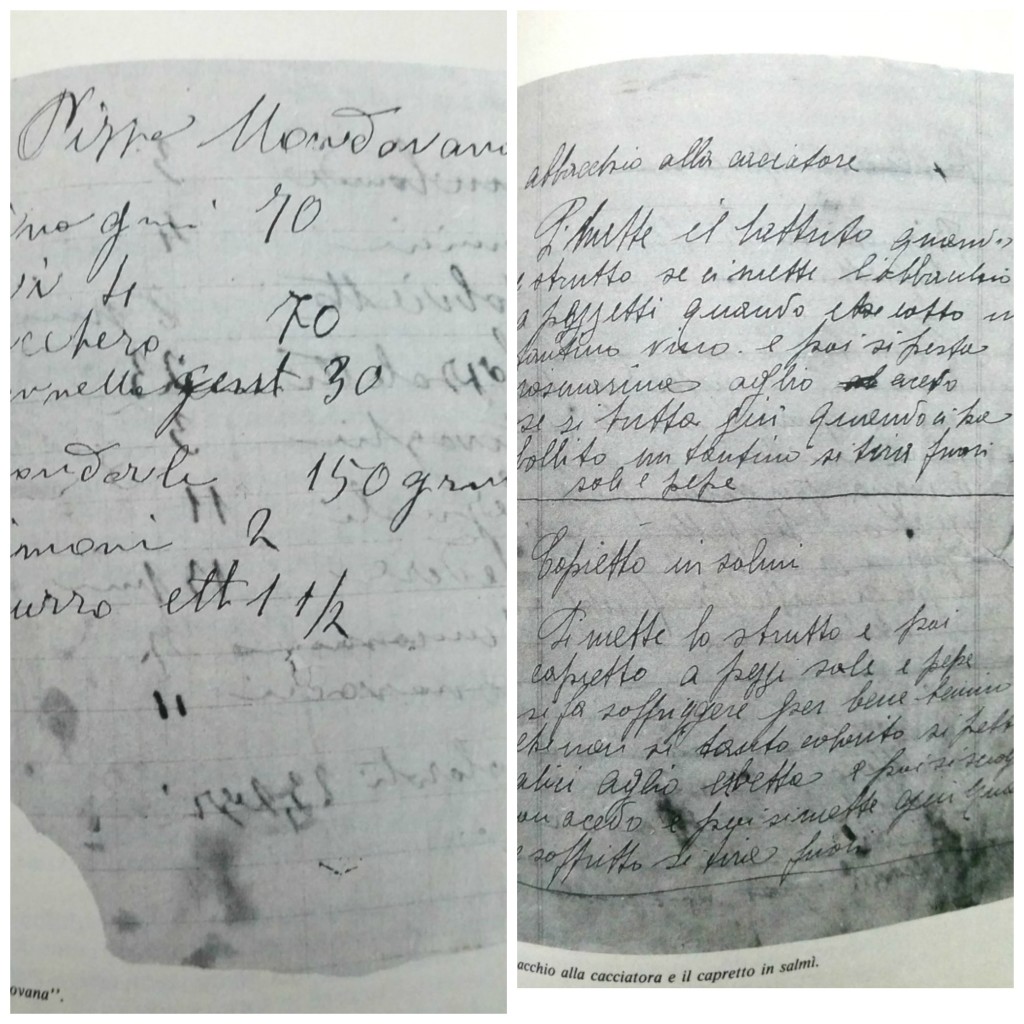 Pizza Mandovana
gna gni 70
vi 4
cchero 70
nnella 30
andarle 150 gram
imoni 2
urro etti 1 1/2
"
ovana".
abbacchio alla cacciatore
Si mette il battuto quando
strutto se ci mette l'abbacchio
a pezzetti quando è cotto
tantino vino. e poi si pesta
rosmarino aglio aceto
se si butta giù quando a
bollito un tantino si tira fuori
sale e pepe
Capretto in salmi
Si mette lo strutto e poi
capretto a pezzi sale e pepe
si fa soffriggere per bene
che non si tanto colorito si
alici aglio erbetta e poi si
on acedo e poi si mette
soffritto si tira fuori
acchio alla cacciatora e il capretto in salmì.